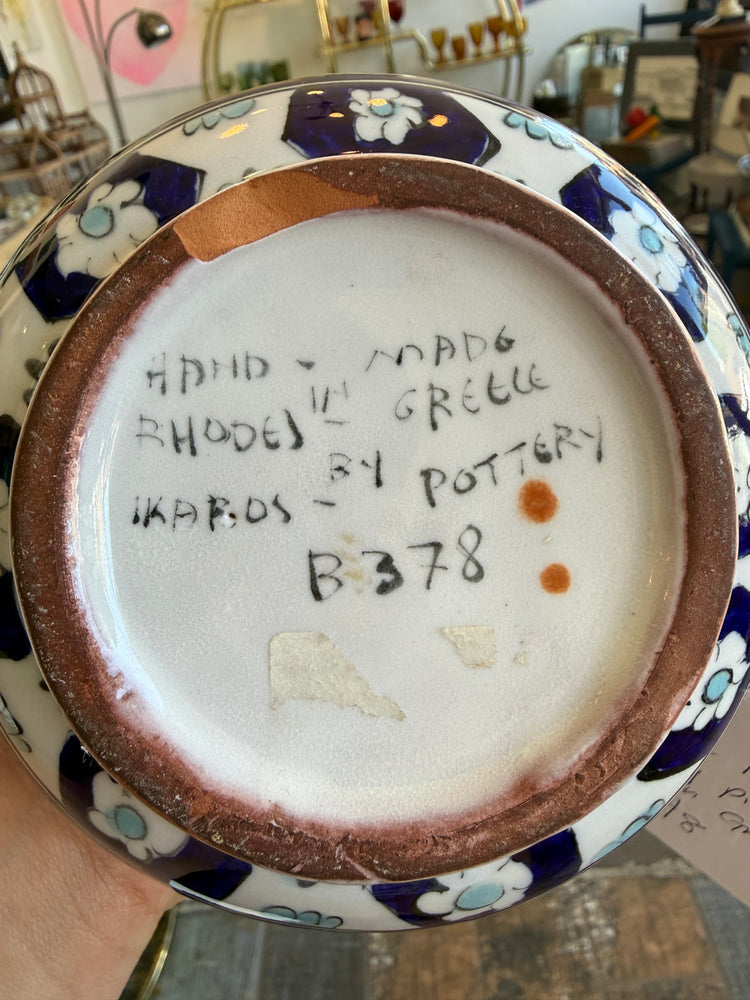 HAND - MADE
RHODES IN GREECE
BY
IKAROS - POTTERY
B 378